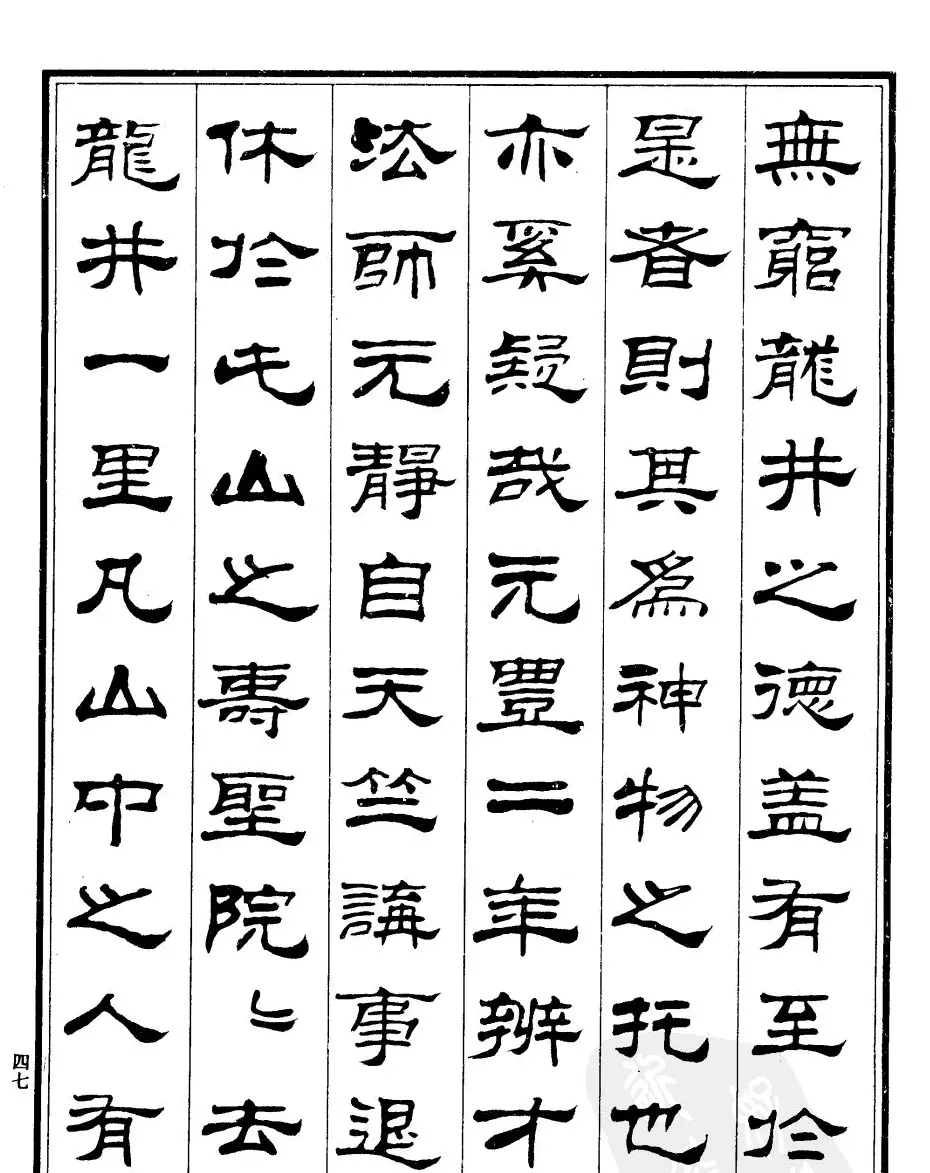 無窮龍井之德盖有至於
是者則其為神物之托也
亦奚疑哉元豐二年辨才
法師元静自天竺講事退
休於此山之壽聖院〻去
龍井一里凡山中之人有
四七